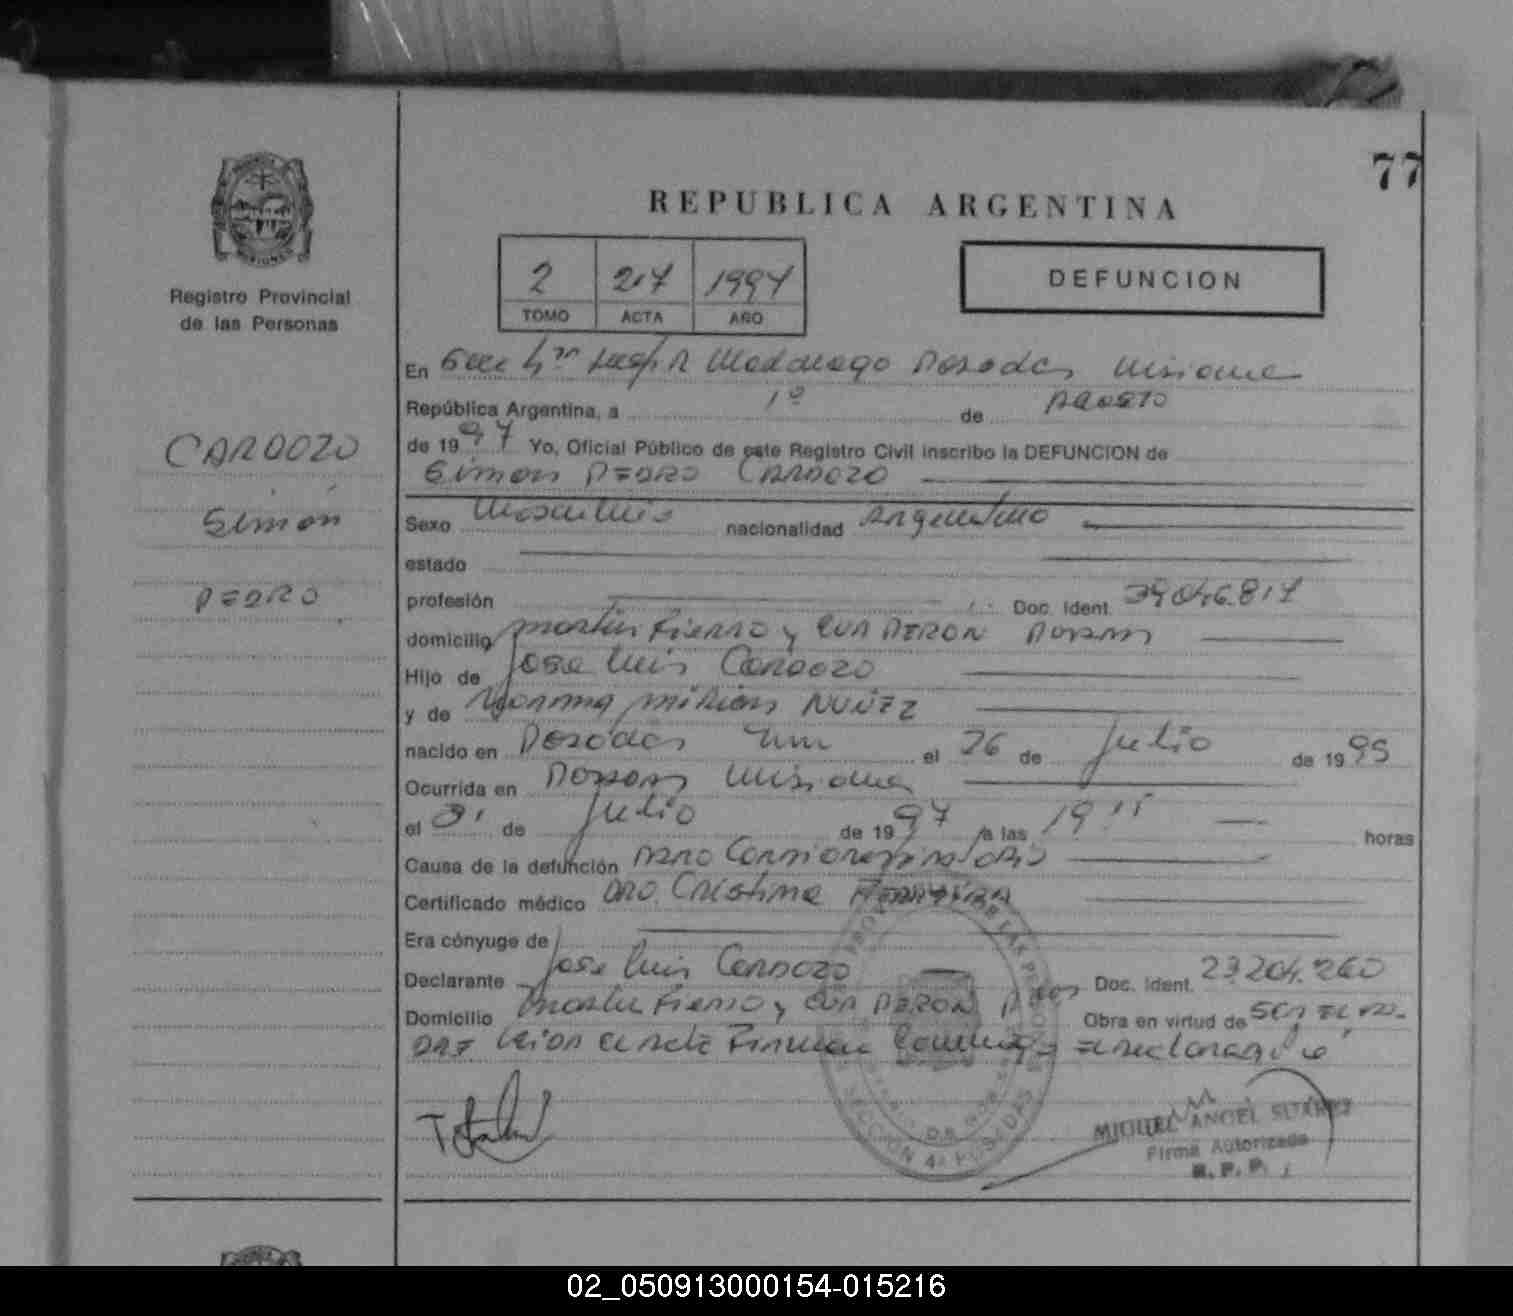 77
REPUBLICA ARGENTINA
Registro Provincial
de las Personas
2 217 1997
TOMO ACTA AÑO
DEFUNCION
En Secc 4ta Posadas Misiones
República Argentina, a 1º de AGOSTO
de 1997 Yo, Oficial Público de este Registro Civil inscribo la DEFUNCION de
Simon PEDRO CARDOZO
CARDOZO
Simón
PEDRO
Sexo Masculino nacionalidad Argentino
estado
profesión Doc. Ident. 39.046.817
domicilio Martin Fierro y EVA PERON Posadas
Hijo de Jose Luis Cardozo
y de Norma Mirian NUÑEZ
nacido en Posadas el 26 de Julio de 1995
Ocurrida en Posadas Misiones
el 31 de Julio de 1997 a las 19 15 horas
Causa de la defunción PARO Cardiorespiratorio
Certificado médico DRA. Cristina
Era cónyuge de
Declarante Jose Luis Cardozo Doc. Ident. 23.204.260
Domicilio Martin Fierro y EVA PERON Pdas Obra en virtud de
Firman el declarante
SECCION 4ª POSADAS
MIGUEL ANGEL SUAREZ
Firma Autorizada
R. P. P.
02_050913000154-015216